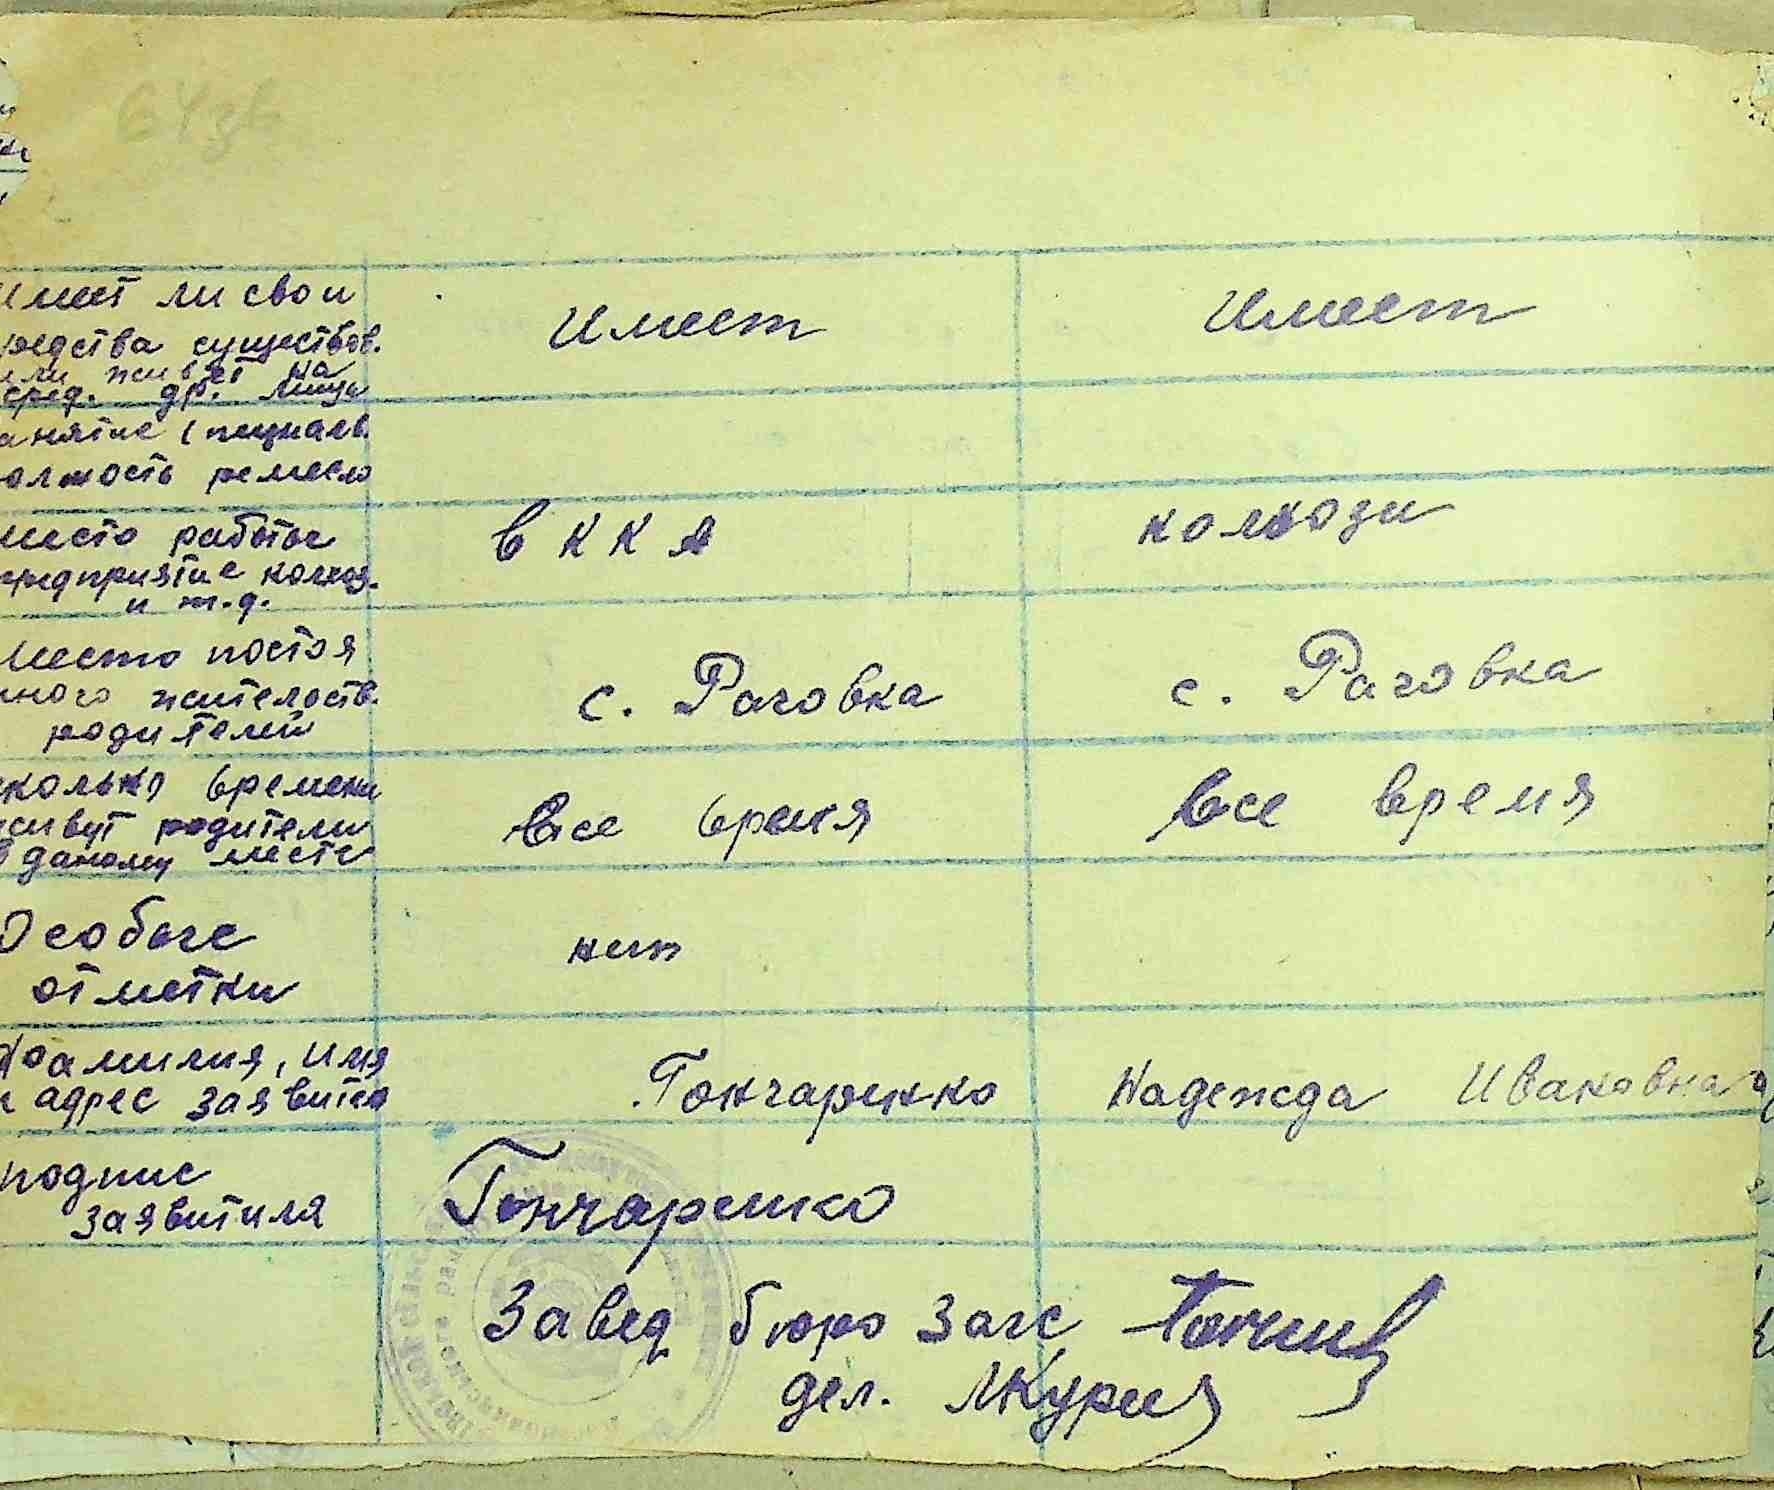 имеет ли свои
средства существов.
или живет на
сред. др. лица
Имеет
Имеет
занятие (пециалв.
олжость ремесло
место работы
предприятие колхоз.
и т.д.
в К К А
колхози
Место постоя
нного жителоств.
родителей
с. Раговка
с. Раговка
сколько времени
живут родители
в даному месте
Все время
Все время
Особые
отметки
нет
Фамилия, имя
и адрес заявител
Гончаренко Надежда Ивановна
подпис
заявитиля
Гончаренко
Завед бюро Загс
дел.